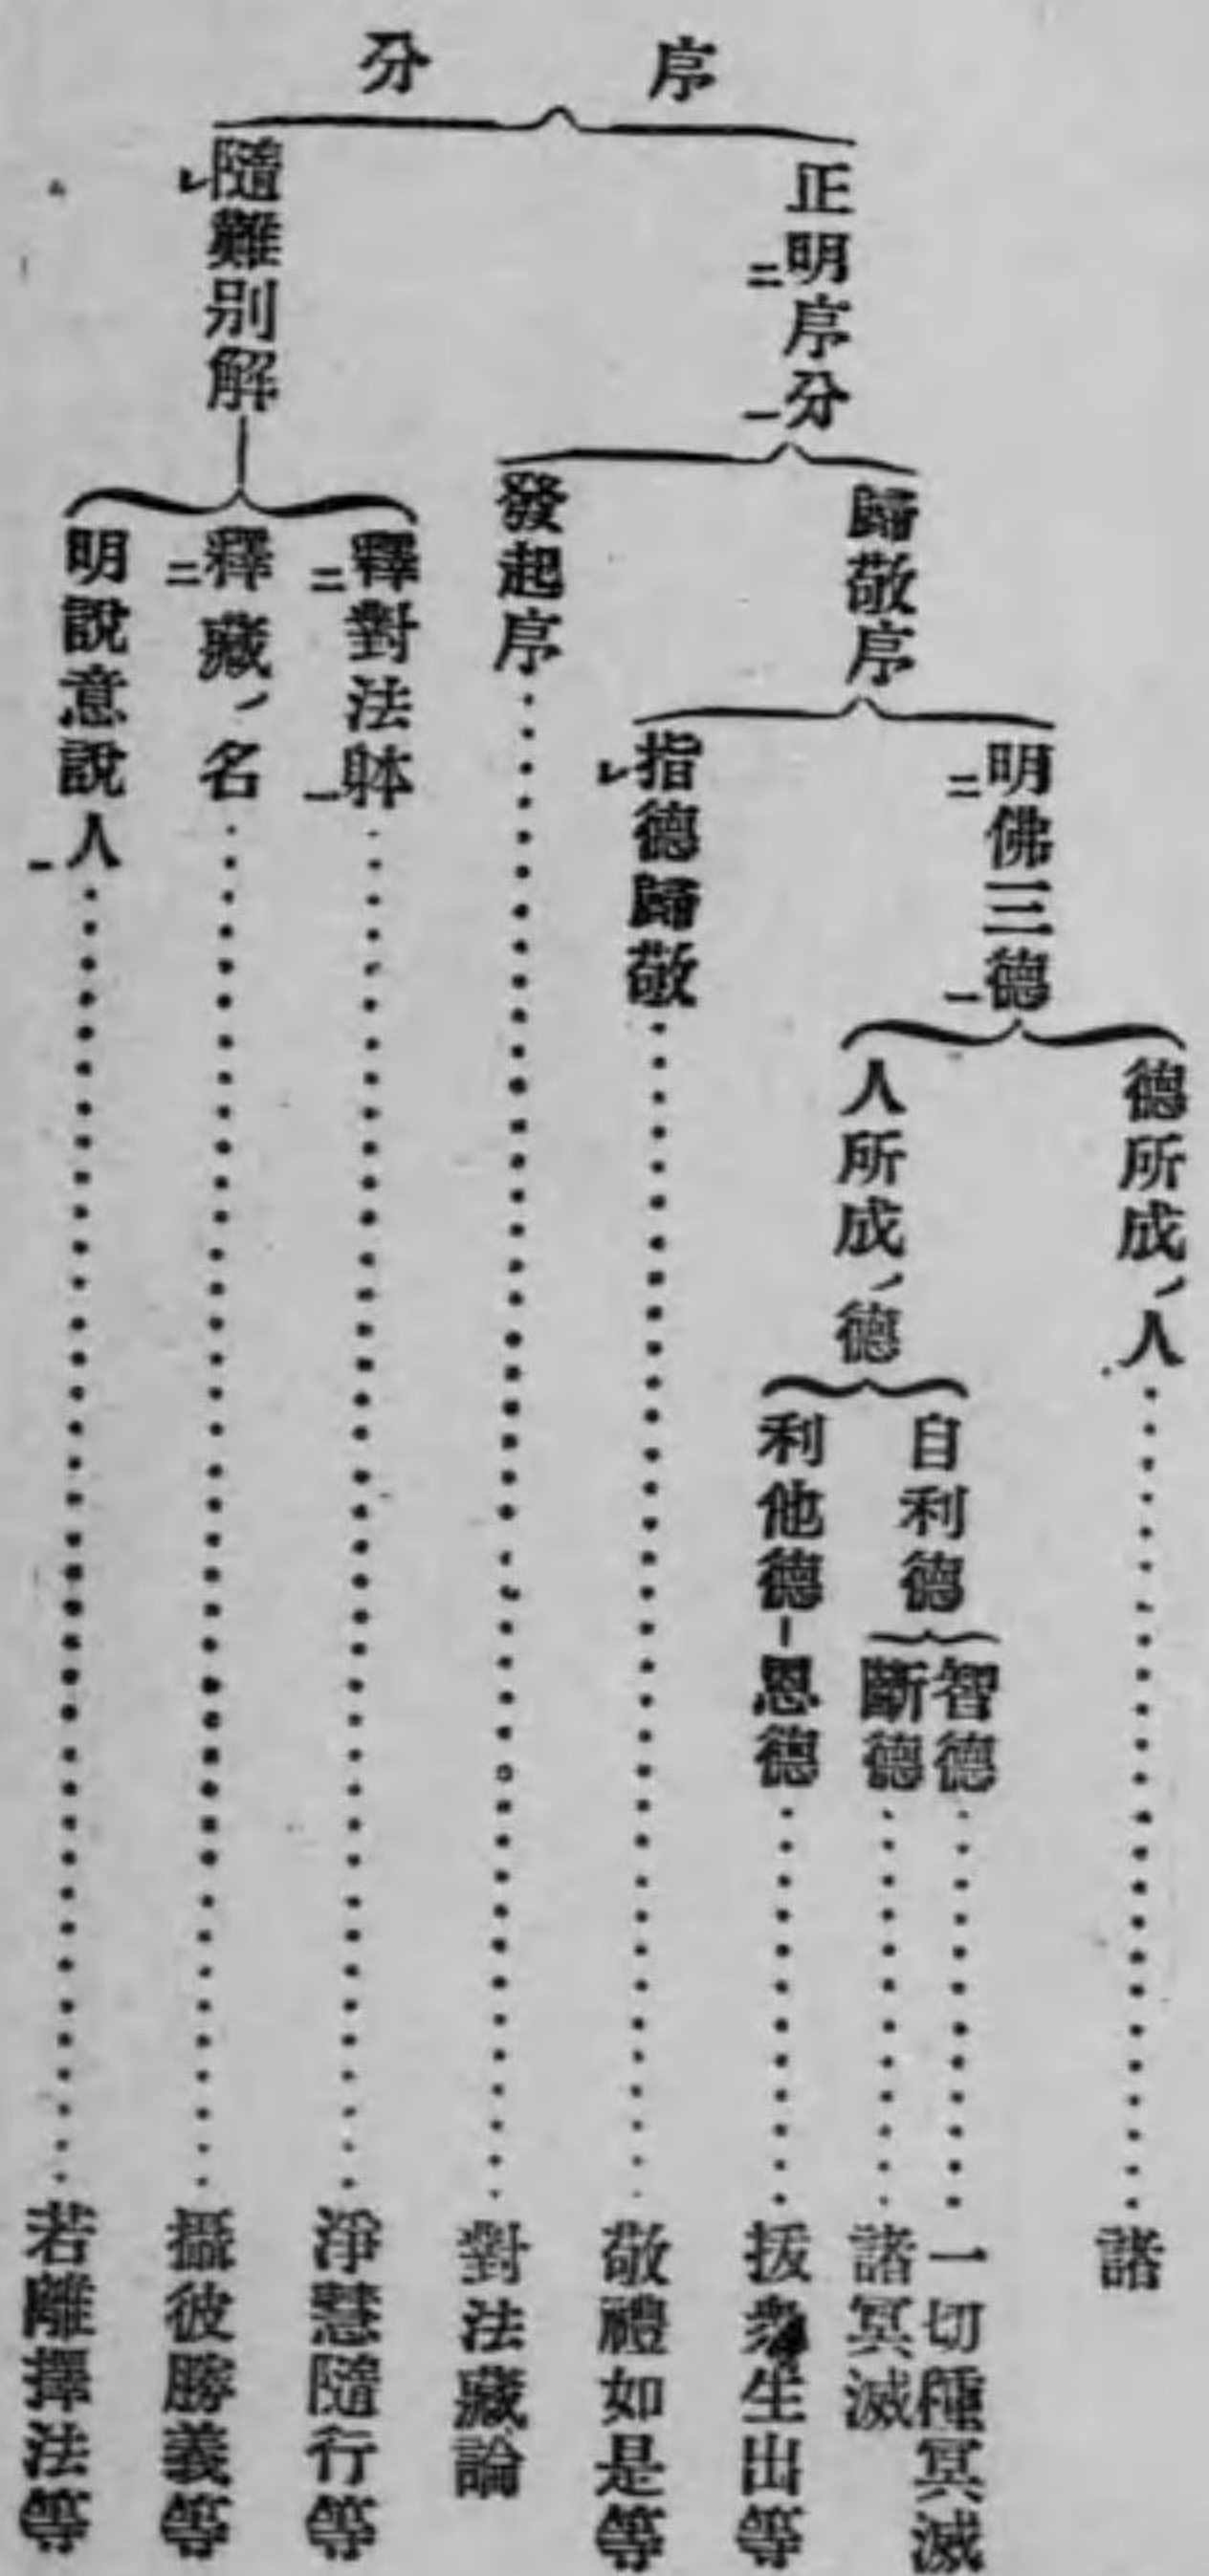 序分
正明二序分一
歸敬序
明二佛三德一
德所成ノ人……諸
人所成ノ德
自利德
智德……一切種冥滅
斷德……諸冥滅
利他德－恩德……拔衆生出等
指レ德歸敬……敬禮如是等
發起序……對法藏論
隨レ難別解
釋二對法躰一……淨慧隨行等
釋二藏ノ名……攝彼勝義等
明說意說人一……若離擇法等